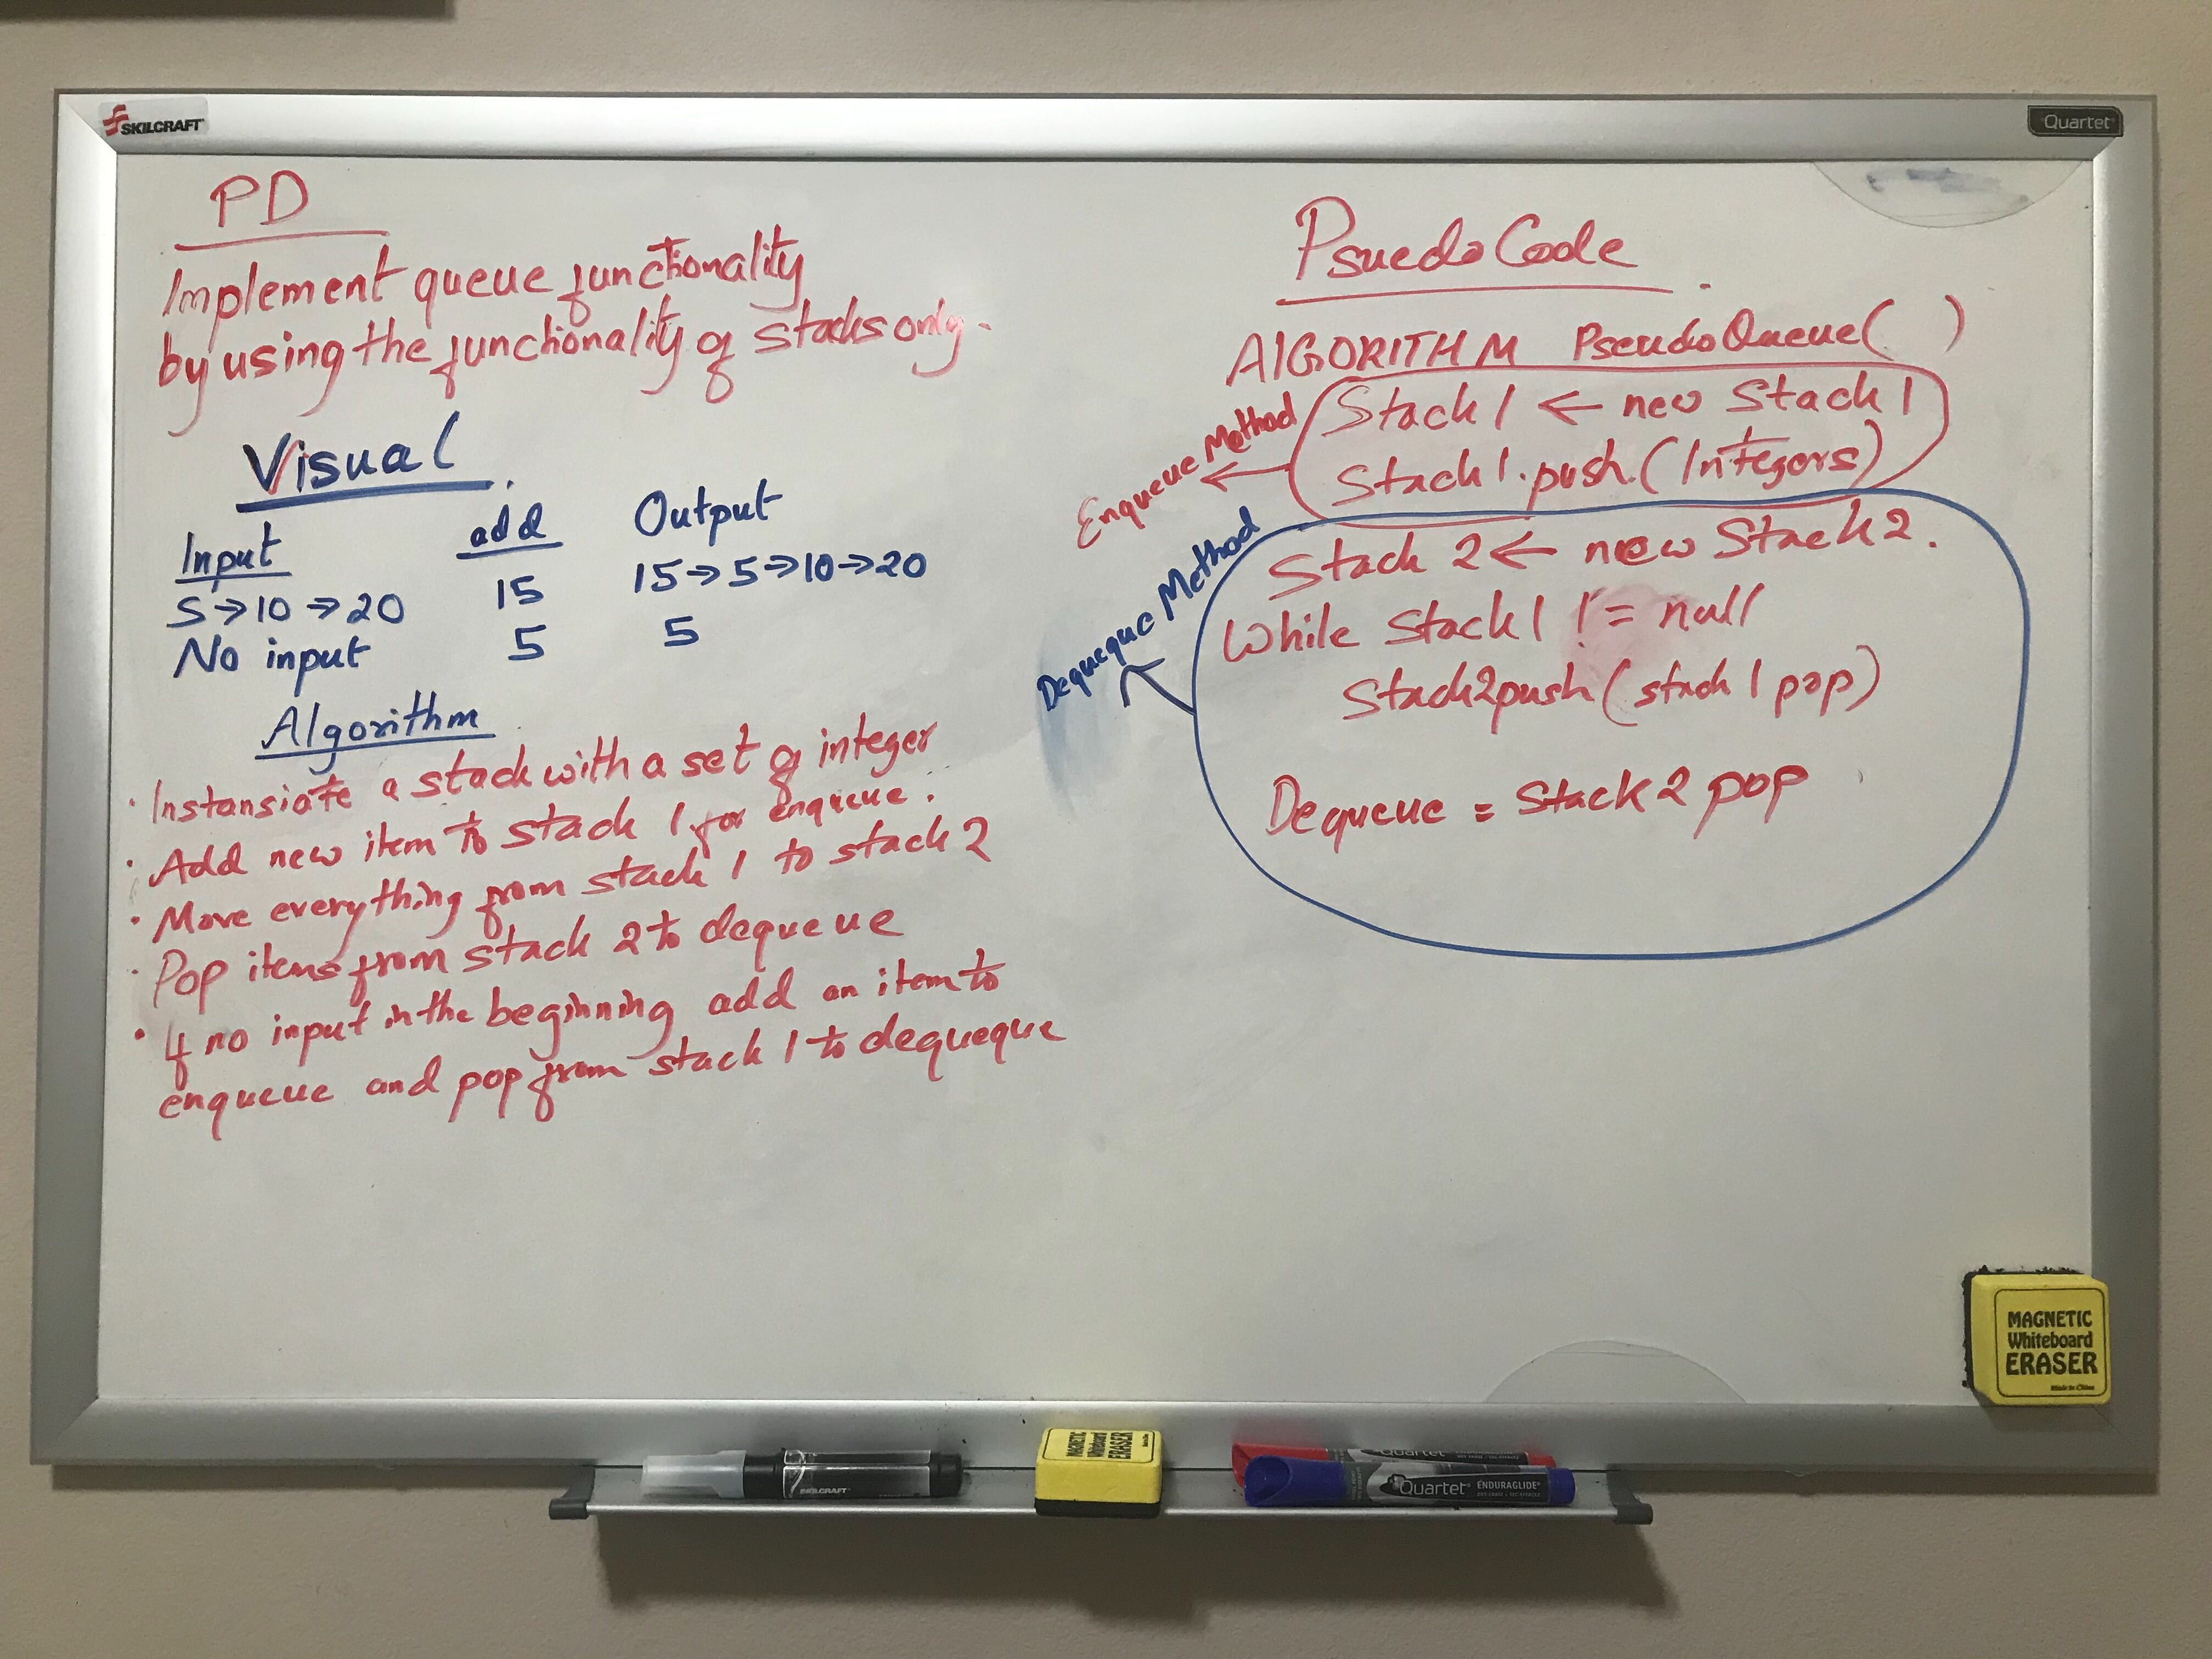 SKILCRAFT
Quartet
PD
Implement queue functionality
by using the functionality of stacks only.
Visual
Input add Output
5→10→20 15 15→5→10→20
No input 5 5
Algorithm
· Instansiate a stack with a set of integer
· Add new item to stack 1 for enqueue.
· Move everything from stack 1 to stack 2
· Pop items from stack 2 to dequeue
· If no input in the beginning add an item to
enqueue and pop from stack 1 to dequeque
Psuedo Code
AlGORITHM PseudoQueue( )
Enqueue Method
Stack1 ← new Stack1
Stack1.push.(Integers)
Dequeque Method
Stack 2 ← new Stack2.
While Stack1 != null
Stack2push(stack1pop)
Dequeue = Stack2 pop
MAGNETIC
Whiteboard
ERASER
Made in China
SKILCRAFT
MAGNETIC
Whiteboard
ERASER
Quartet
Quartet ENDURAGLIDE